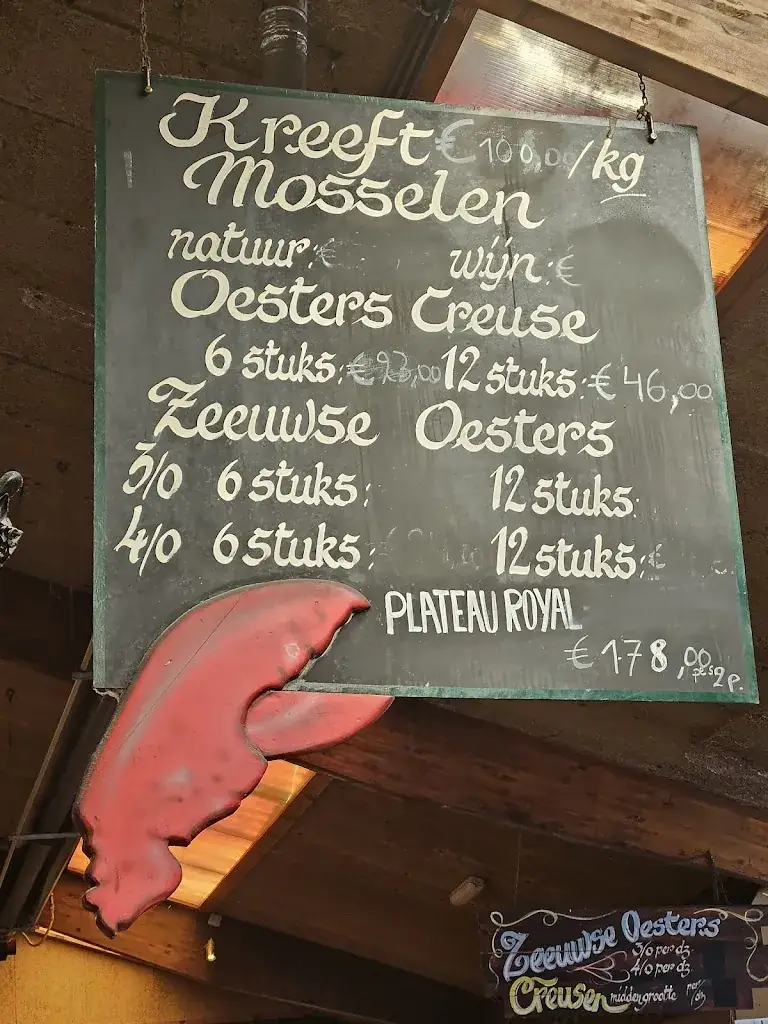 Kreeft € 100,00/kg
Mosselen
natuur: € wijn: €
Oesters Creuse
6 stuks: € 23,00 12 stuks: € 46,00
Zeeuwse Oesters
3/0 6 stuks: 12 stuks:
4/0 6 stuks: € 12 stuks: €
PLATEAU ROYAL
€ 178,00
2p.
Zeeuwse Oesters
3/0 per dz.
4/0 per dz.
Creusen middengrootte per/dz